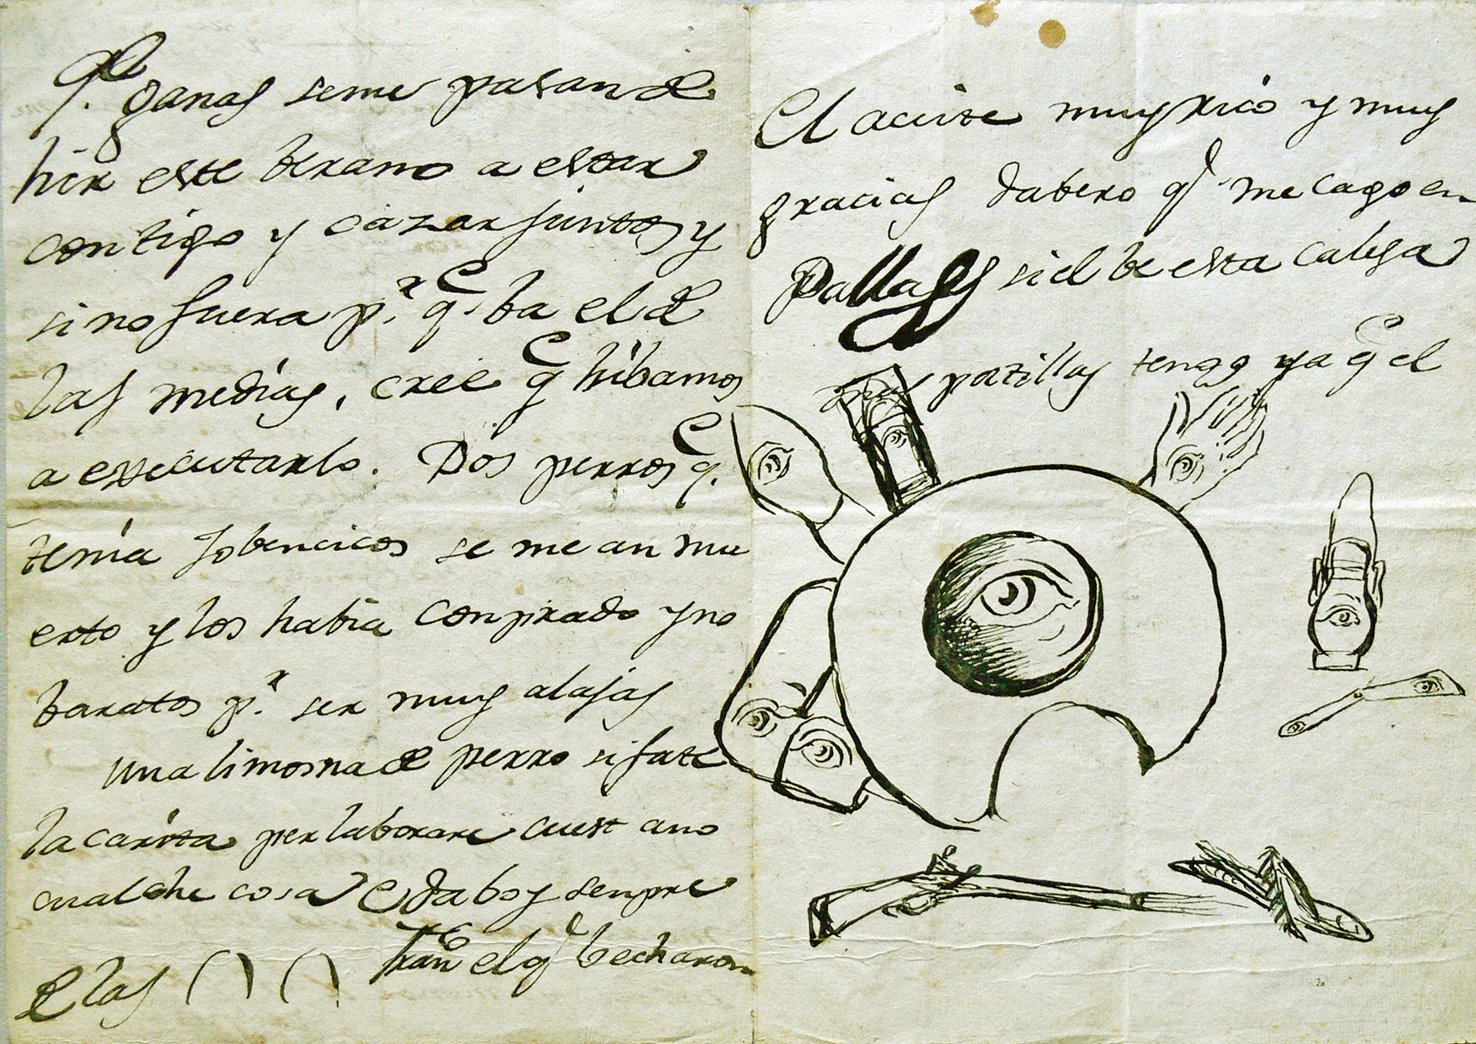 q.e ganas se me pasan de
hir este berano a estar
contigo y cazar juntos y
si no fuera p.r q.e ba el de
las medias, cree q.e hibamos
a executarlo. Dos perros q.e
tenia jobencicos se me an mu
erto y los habia conprado y no
baratos p.r ser muy alajas
una limosna de perro si fate
la carita per laborare cuest ano
cualche cosa e da boy senpre
Fran.co el q.e
e las () ()
El aceite muy rico y muy
gracias dabero q.e me cago en
Pallas si el be esta cabesa
patillas tengo ya q.e el